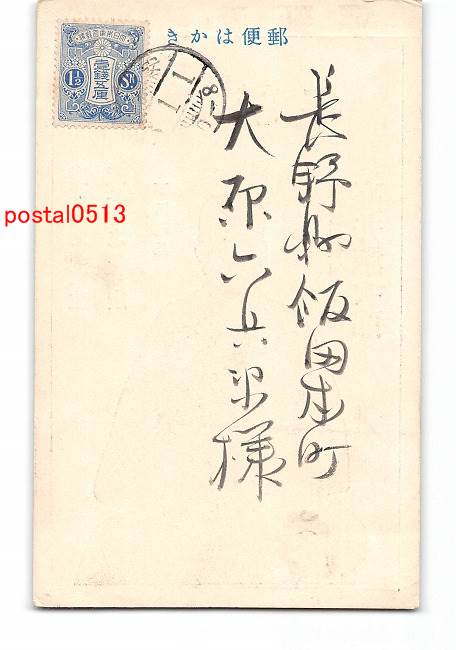 郵便はかき
長野県飯田本町
大原六兵衛様
大日本帝國郵便
壹錢五厘
1½ Sn
postal0513